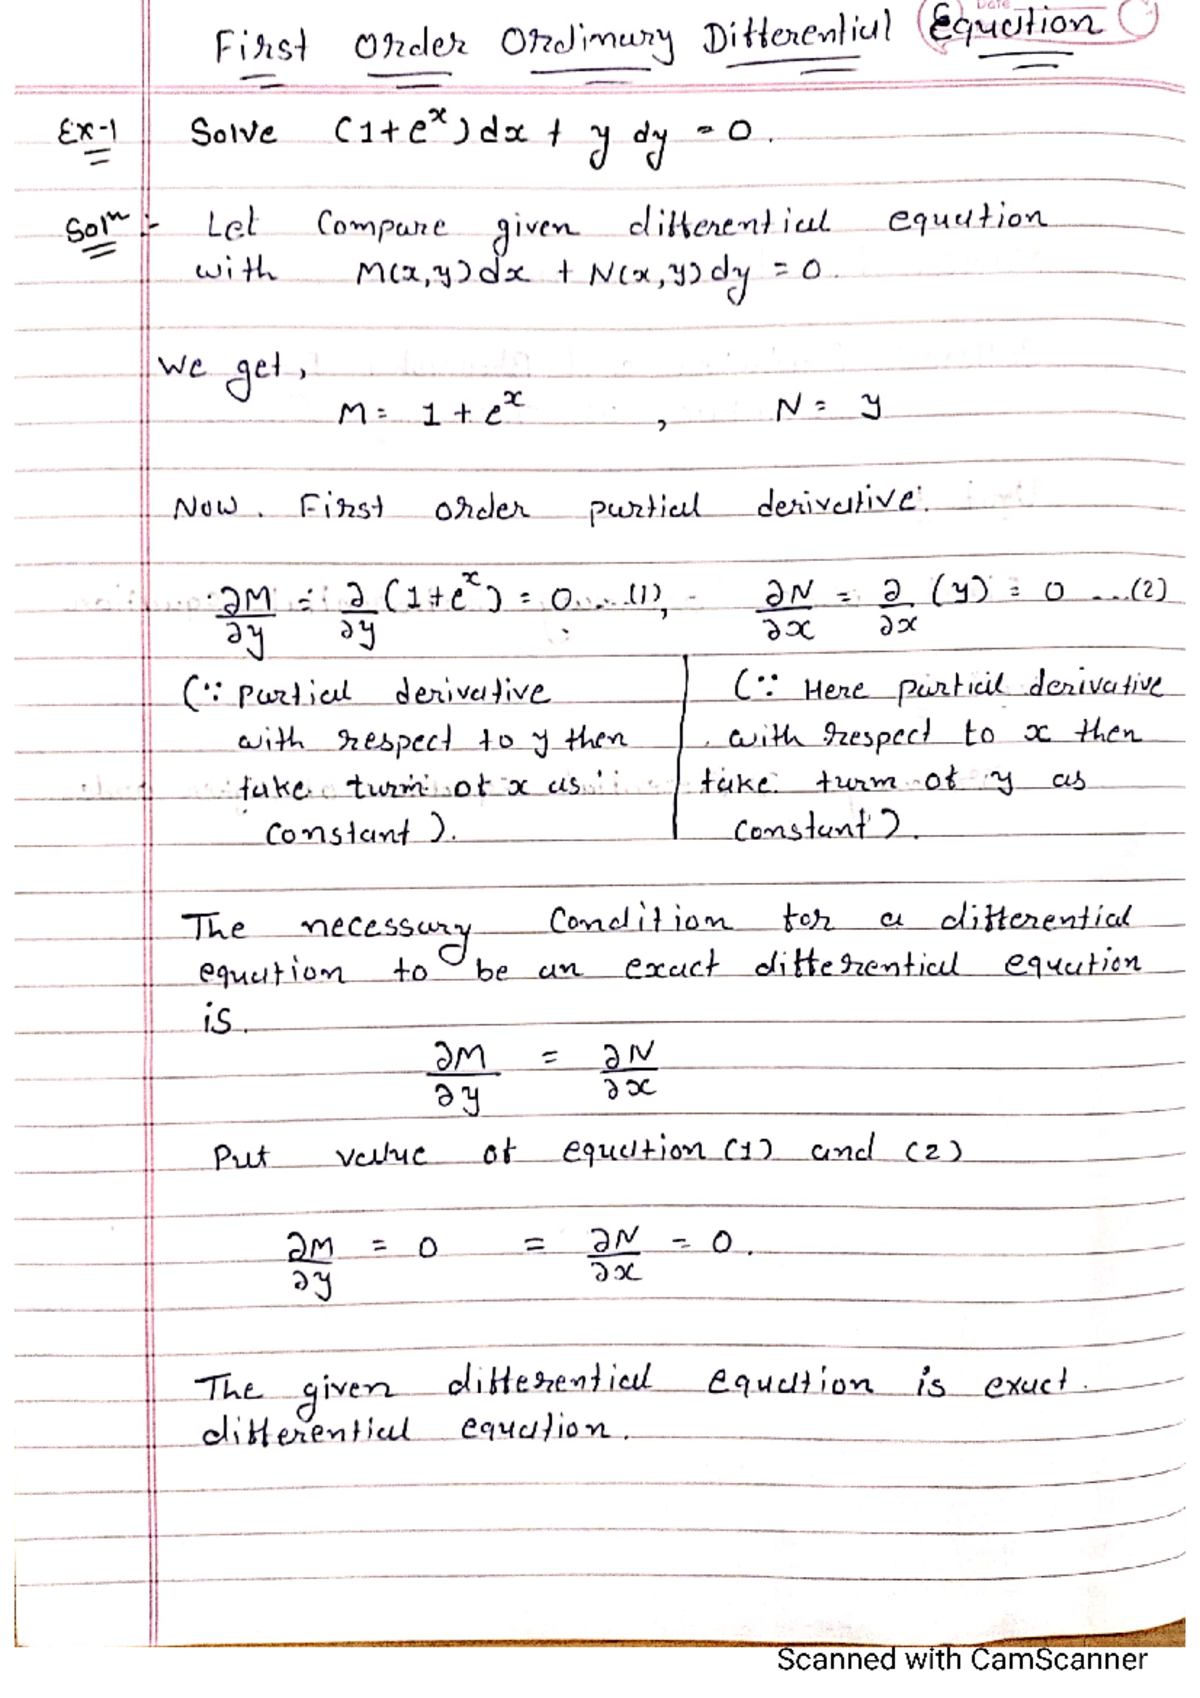 Date
First Order Ordinary Differential Equation
Ex-1 Solve (1+eˣ)dx + y dy = 0.
Solⁿ :- Let Compare given differential equation
with M(x,y)dx + N(x,y)dy = 0.
We get,
M = 1 + eˣ , N = y
Now. First order partial derivative.
∂M/∂y = ∂/∂y (1+eˣ) = 0 ...(1), ∂N/∂x = ∂/∂x (y) = 0 ...(2)
(∵ partial derivative
with respect to y then
take turm of x as
constant).
(∵ Here partial derivative
with respect to x then
take turm of y as
constant).
The necessary Condition for a differential
equation to be an exact differential equation
is.
∂M/∂y = ∂N/∂x
Put value of equation (1) and (2)
∂M/∂y = 0 = ∂N/∂x = 0.
The given differential equation is exact.
differential equation.
Scanned with CamScanner